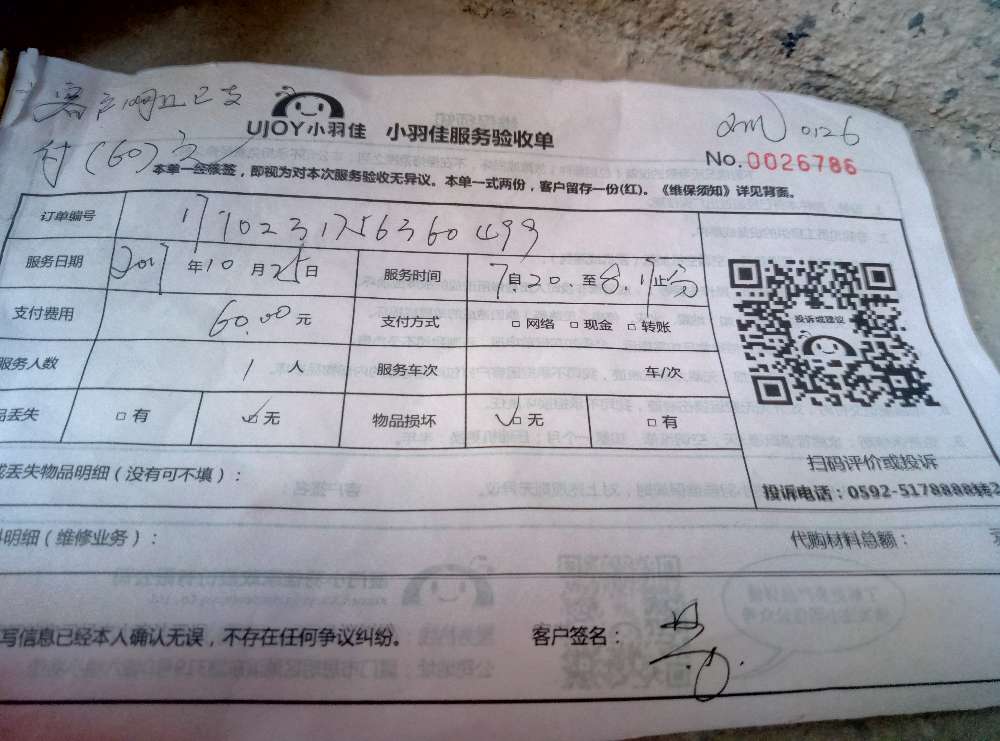 客户网上已支
付(60)元
UJOY小羽佳 小羽佳服务验收单
0126
No.0026786
本单一经核签，即视为对本次服务验收无异议。本单一式两份，客户留存一份(红)。《维保须知》详见背面。
订单编号
服务日期 2017年10月25日 服务时间 7自.20.至8.17止
支付费用 60.00元 支付方式 □网络 □现金 □转账
服务人数 1 服务车次 车/次
品丢失 □有 ☑无 物品损坏 ☑无 □有
投诉或建议
扫码评价或投诉
投诉电话：0592-5178888转2
或丢失物品明细（没有可不填）：
料明细（维修业务）： 代购材料总额：
写信息已经本人确认无误，不存在任何争议纠纷。 客户签名：